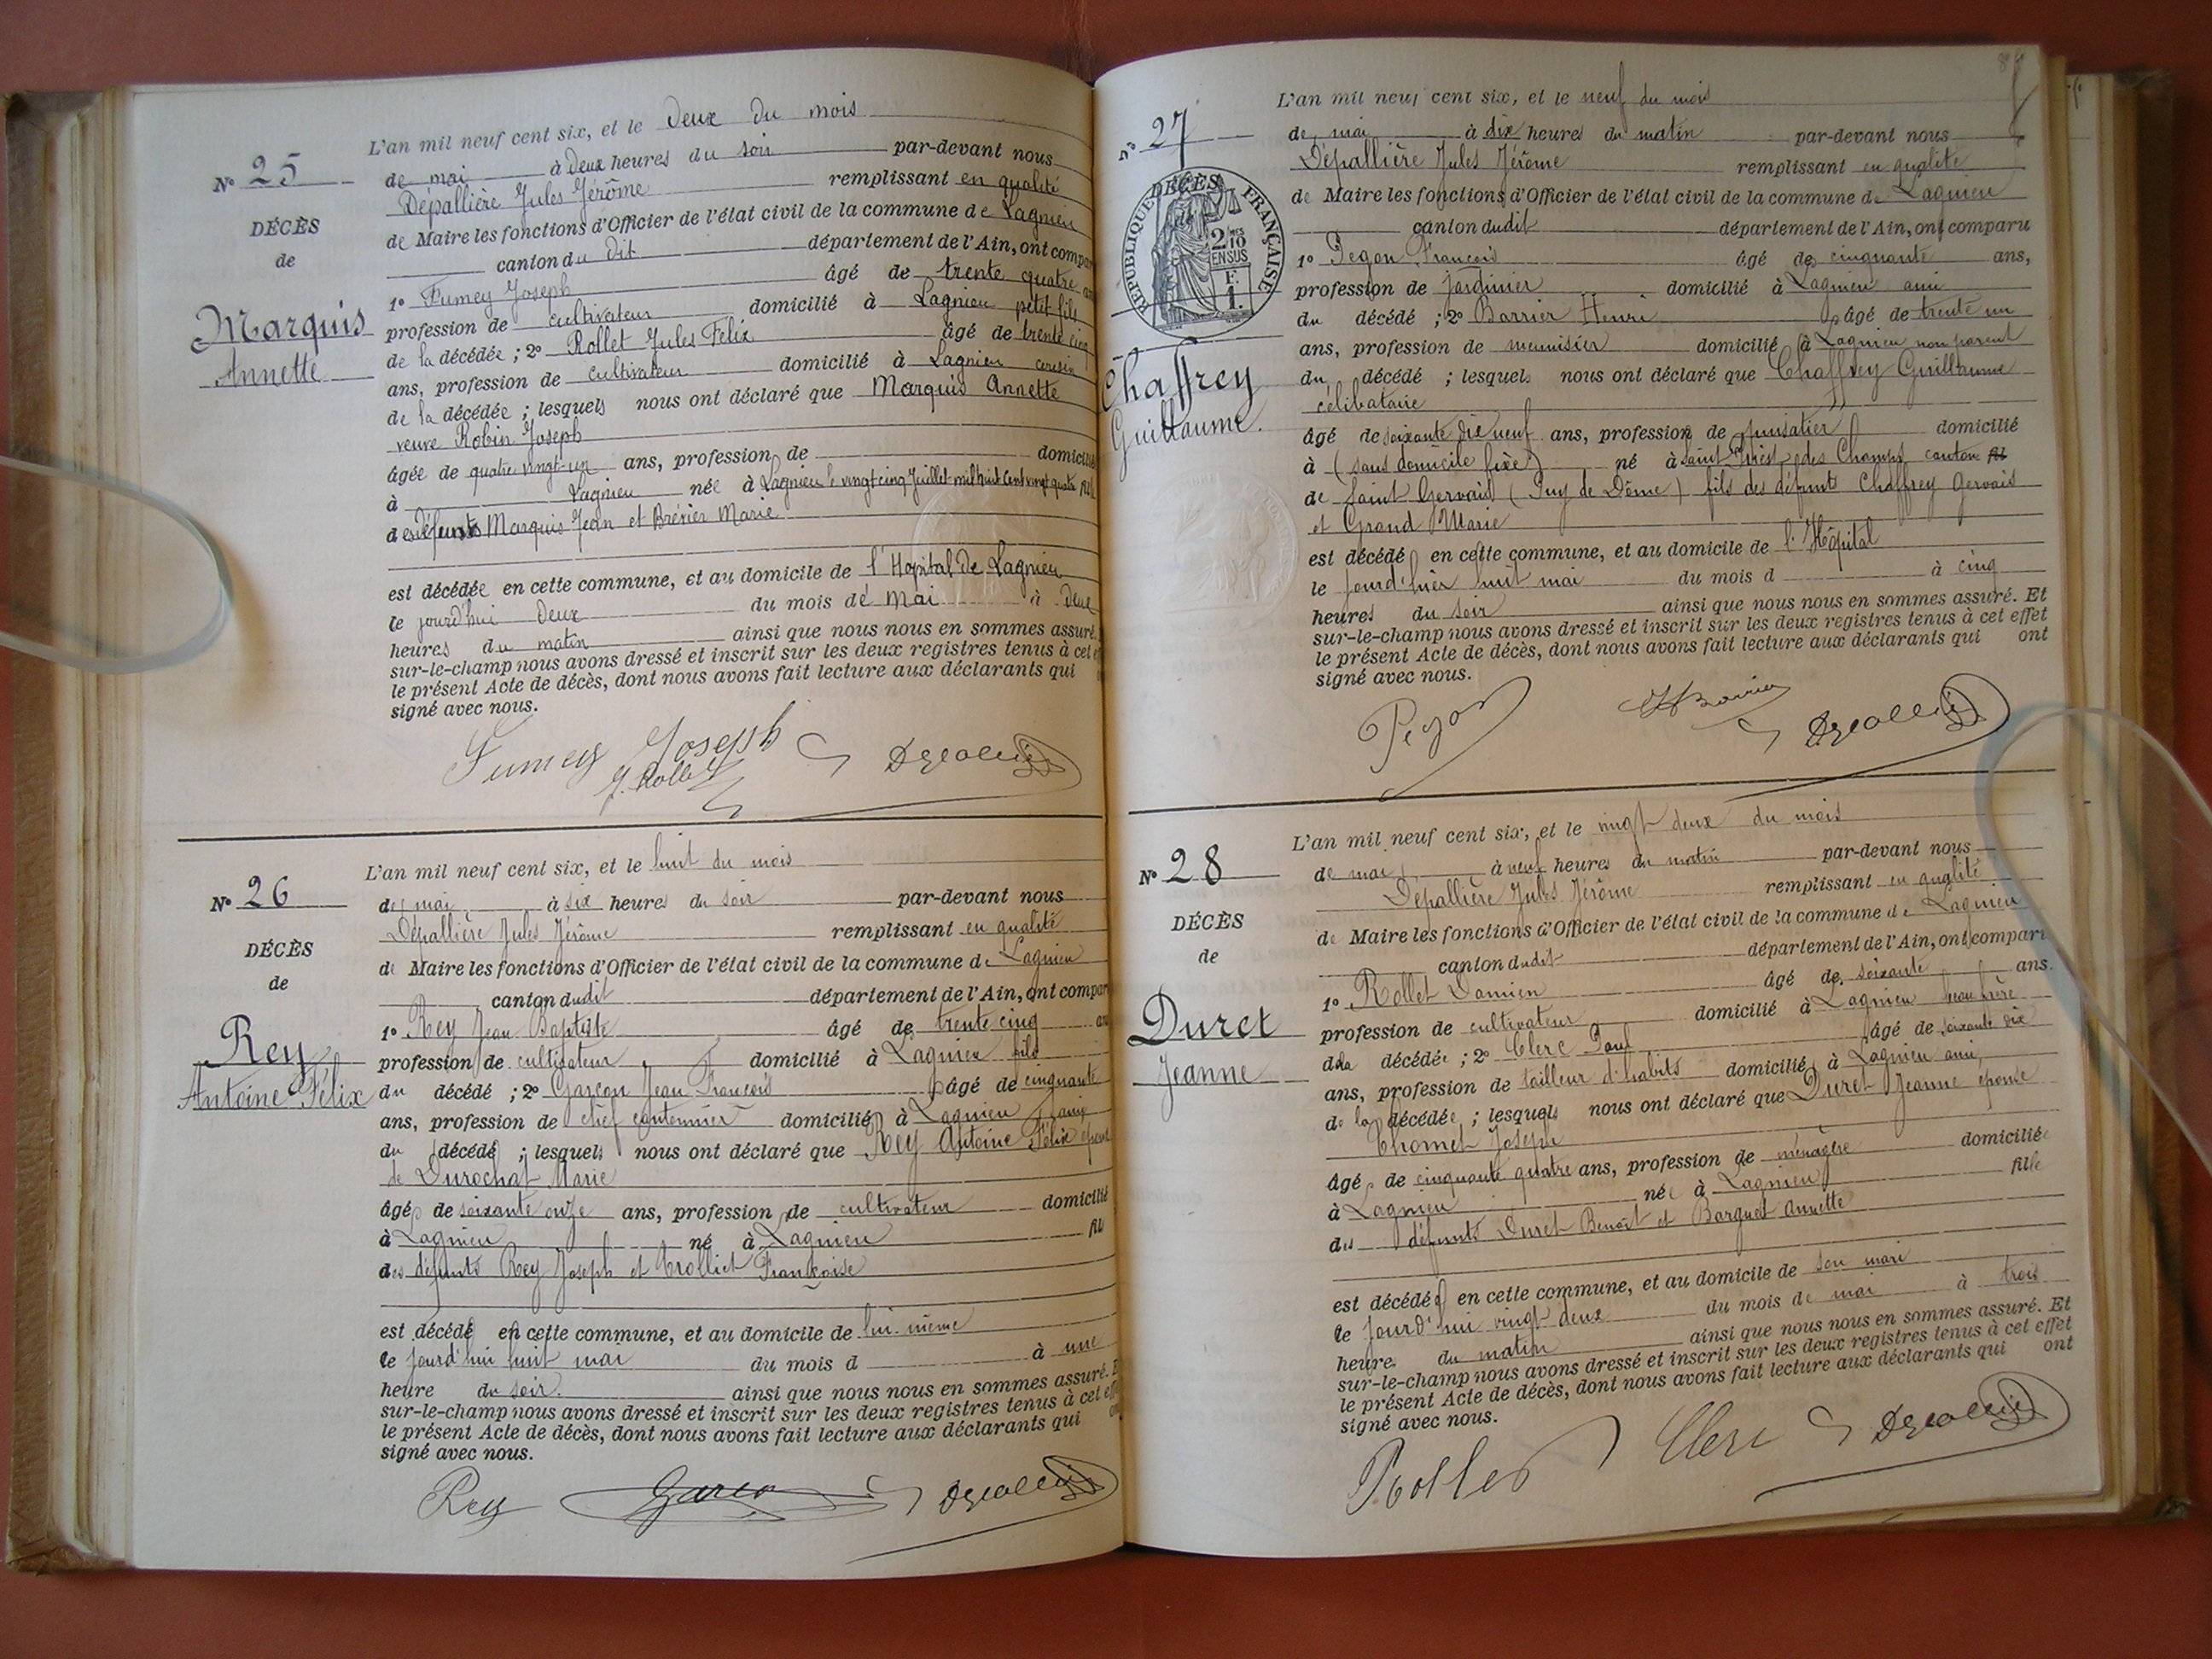 N° 25
DÉCÈS
de
Marquis
Annette
L'an mil neuf cent six, et le Deux du mois
de mai à Deux heures du soir par-devant nous
Dépallière Jules Jérôme remplissant en qualité
de Maire les fonctions d'Officier de l'état civil de la commune de Lagnieu
canton du dit département de l'Ain, ont compar
1° Fumey Joseph âgé de trente quatre
profession de cultivateur domicilié à Lagnieu petit fils
de la décédée ; 2° Rollet Jules Félix âgé de trente cinq
ans, profession de cultivateur domicilié à Lagnieu cousin
de la décédée ; lesquels nous ont déclaré que Marquis Annette
veuve Robin Joseph
âgée de quatre vingt-un ans, profession de domicilié
à Lagnieu née à Lagnieu le vingt cinq Juillet mil huit cent vingt quatre fille
des défunts Marquis Jean et Brévier Marie
est décédée en cette commune, et au domicile de l'Hopital de Lagnieu
le jourd'hui deux du mois de Mai à Deux
heures du matin ainsi que nous nous en sommes assuré.
sur-le-champ nous avons dressé et inscrit sur les deux registres tenus à cet
le présent Acte de décès, dont nous avons fait lecture aux déclarants qui
signé avec nous.
Fumey Joseph
J. Rollet
N° 26
DÉCÈS
de
Rey
Antoine Félix
L'an mil neuf cent six, et le huit du mois
de mai à six heures du soir par-devant nous
Dépallière Jules Jérôme remplissant en qualité
de Maire les fonctions d'Officier de l'état civil de la commune de Lagnieu
canton dudit département de l'Ain, ont compar
1° Rey Jean Baptiste âgé de trente cinq
profession de cultivateur domicilié à Lagnieu fils
du décédé ; 2° Garçon Jean François âgé de cinquante
ans, profession de chef cantonnier domicilié à Lagnieu ami
du décédé ; lesquels nous ont déclaré que Rey Antoine Félix époux
de Durochat Marie
âgé de soixante onze ans, profession de cultivateur domicilié
à Lagnieu né à Lagnieu fils
des défunts Rey Joseph et Trolliet Françoise
est décédé en cette commune, et au domicile de lui-même
le jourd'hui huit mai du mois d à une
heure du soir. ainsi que nous nous en sommes assuré.
sur-le-champ nous avons dressé et inscrit sur les deux registres tenus à cet
le présent Acte de décès, dont nous avons fait lecture aux déclarants qui
signé avec nous.
Rey
N° 27
RÉPUBLIQUE FRANÇAISE
DÉCÈS
2/10 EN SUS
F. 1.
Chaffrey
Guillaume.
L'an mil neuf cent six, et le neuf du mois
de mai à dix heures du matin par-devant nous
Dépallière Jules Jérôme remplissant en qualité
de Maire les fonctions d'Officier de l'état civil de la commune de Lagnieu
canton dudit département de l'Ain, ont comparu
1° Pegon François âgé de cinquante ans,
profession de jardinier domicilié à Lagnieu ami
du décédé ; 2° Barrier Henri âgé de trente un
ans, profession de menuisier domicilié à Lagnieu non parent
du décédé ; lesquels nous ont déclaré que Chaffrey Guillaume
célibataire
âgé de soixante dix neuf ans, profession de puisatier domicilié
à (sans domicile fixe) né à Saint Priest des Champs canton fil
de Saint Gervais (Puy de Dôme) fils des défunts Chaffrey Gervais
et Grand Marie
est décédé en cette commune, et au domicile de l'Hôpital
le jourd'hier huit mai du mois d à cinq
heures du soir ainsi que nous nous en sommes assuré. Et
sur-le-champ nous avons dressé et inscrit sur les deux registres tenus à cet effet
le présent Acte de décès, dont nous avons fait lecture aux déclarants qui ont
signé avec nous.
Pegon
N° 28
DÉCÈS
de
Duret
Jeanne
L'an mil neuf cent six, et le vingt deux du mois
de mai à neuf heures du matin par-devant nous
Dépallière Jules Jérôme remplissant en qualité
de Maire les fonctions d'Officier de l'état civil de la commune de Lagnieu
canton dudit département de l'Ain, ont compar
1° Rollet Damien âgé de soixante ans.
profession de cultivateur domicilié à Lagnieu beau frère
de la décédée ; 2° Clerc Paul âgé de soixante dix
ans, profession de tailleur d'habits domicilié à Lagnieu ami
de la décédée ; lesquels nous ont déclaré que Duret Jeanne épouse
Thomet Joseph
âgé de cinquante quatre ans, profession de ménagère domiciliée
à Lagnieu née à Lagnieu fille
des défunts Duret Benoît et Barquet Annette
est décédée en cette commune, et au domicile de son mari
le jourd'hui vingt deux du mois de mai à trois
heures du matin ainsi que nous nous en sommes assuré. Et
sur-le-champ nous avons dressé et inscrit sur les deux registres tenus à cet effet
le présent Acte de décès, dont nous avons fait lecture aux déclarants qui ont
signé avec nous.
Rollet Clerc